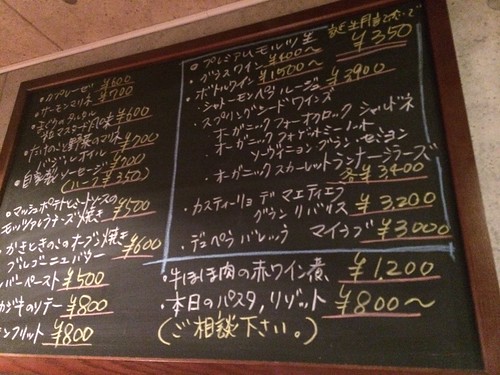 ・カプレーゼ ¥600
・サーモンマリネ ¥700
・まぐろのタルタル
粒マスタード風味 ¥600
・たけのこと野菜のマリネ
バジルオイル ¥700
自家製ソーセージ ¥700
(ハーフ ¥350)
・マッシュポテトとミートソースの
モッツァレラチーズ焼き ¥500
かきときのこのオーブン焼き
ブルゴーニュバター ¥600
レバーペースト ¥500
カジキのソテー ¥800
ンフリット ¥800
・プレミアムモルツ 生 ¥350
・グラスワイン ¥400〜
・ボトルワイン ¥1,500〜
・シャトーモンペラ ルージュ ¥3900
・スプリングシードワインズ
・オーガニック フォーオクロック シャルドネ
・オーガニック フォーゲットミーノット
ソーヴィニョングラン・セミヨン
・オーガニック スカーレットランナーシラーズ
各¥3400
・カスティーリョ デ マエティエラ
グラン リバリス ¥3,200
・デュペラ バレック マイラブ ¥3000
・牛ほほ肉の赤ワイン煮 ¥1200
・本日のパスタ,リゾット ¥800〜
(ご相談下さい。)